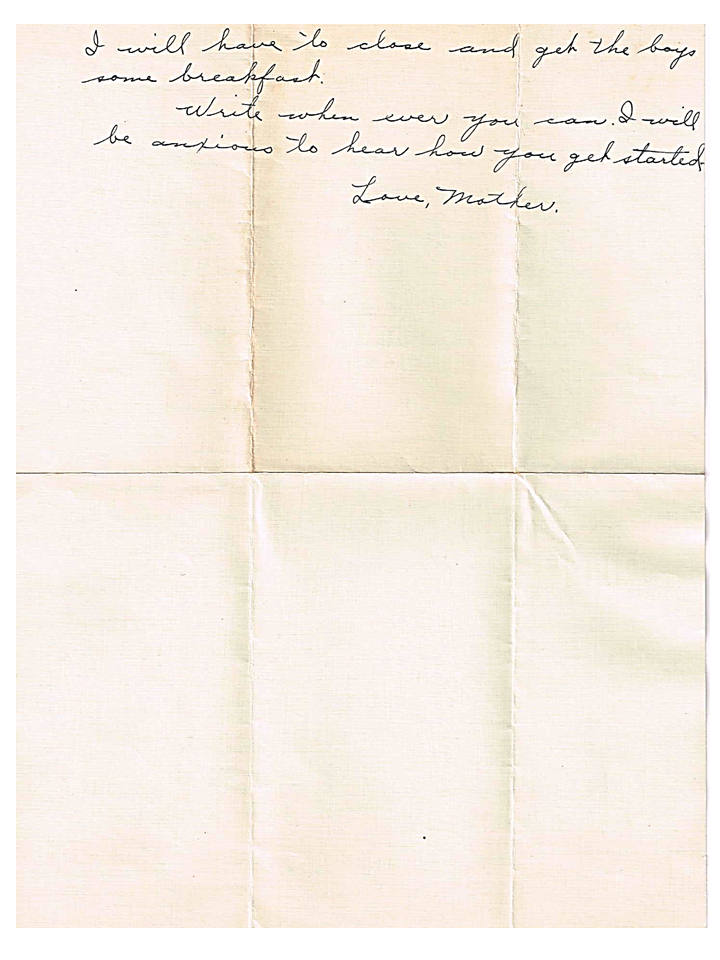 I will have to close and get the boys
some breakfast.
Write when ever you can. I will
be anxious to hear how you get started
Love, Mother.